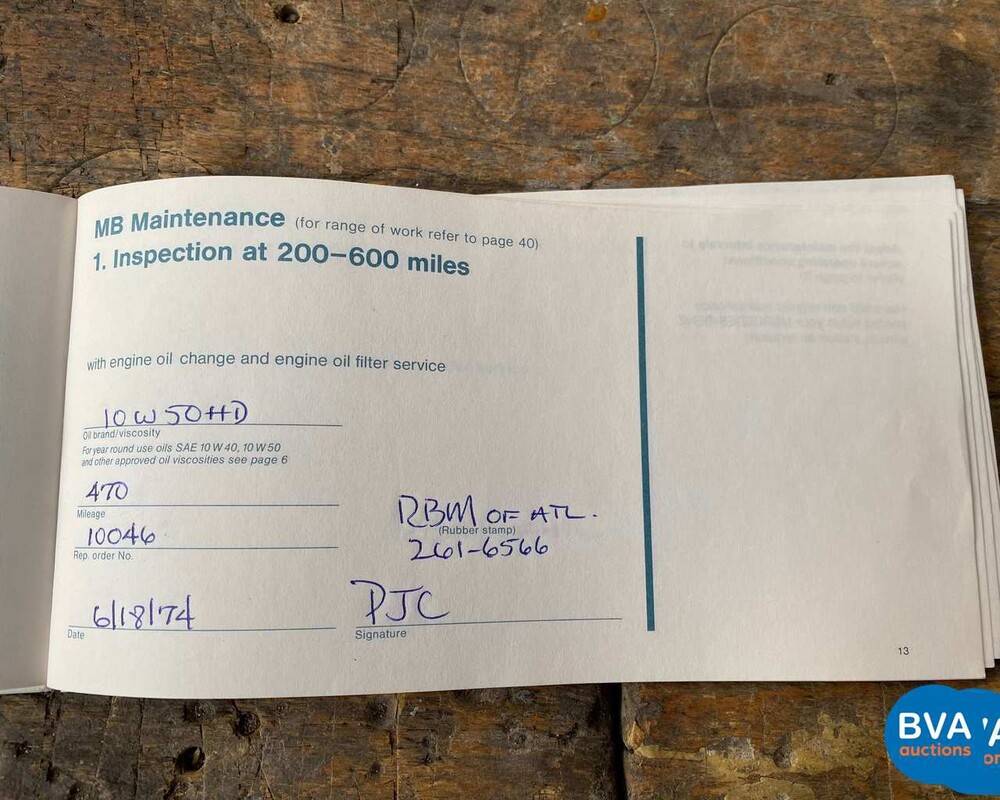 MB Maintenance (for range of work refer to page 40)
1. Inspection at 200–600 miles
with engine oil change and engine oil filter service
10 W 50 HD
Oil brand/viscosity
For year round use oils SAE 10 W 40, 10 W 50
and other approved oil viscosities see page 6
470
Mileage
10046
Rep. order No.
RBM OF ATL.
(Rubber stamp)
261-6566
6/18/74
Date
PJC
Signature
13
BVA
auctions